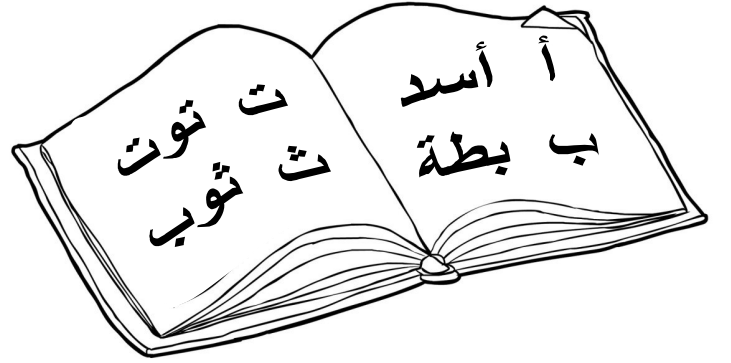 أ أسد
ب بطة
ت توت
ث ثوب